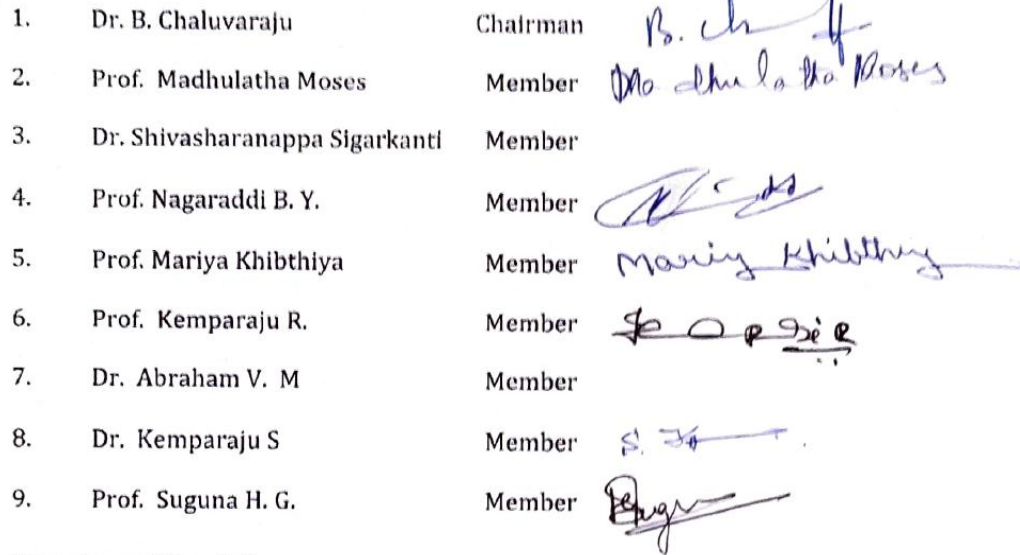 1. Dr. B. Chaluvaraju Chairman B. Ch
2. Prof. Madhulatha Moses Member Madhulatha Moses
3. Dr. Shivasharanappa Sigarkanti Member
4. Prof. Nagaraddi B. Y. Member
5. Prof. Mariya Khibthiya Member Mariy Khibthiy
6. Prof. Kemparaju R. Member
7. Dr. Abraham V. M Member
8. Dr. Kemparaju S Member S.
9. Prof. Suguna H. G. Member